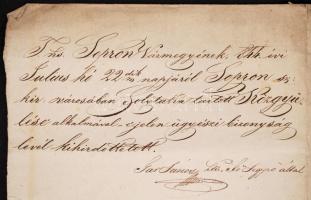 T. ns. Sopron Vármegyének, 844 évi
Julius hó 22dik napjáról Sopron sz.
kir. városában folytatva tartott Közgyü-
lése alkalmával ejelen ügyészi bizonyság
levél kihirdettetett.
János által